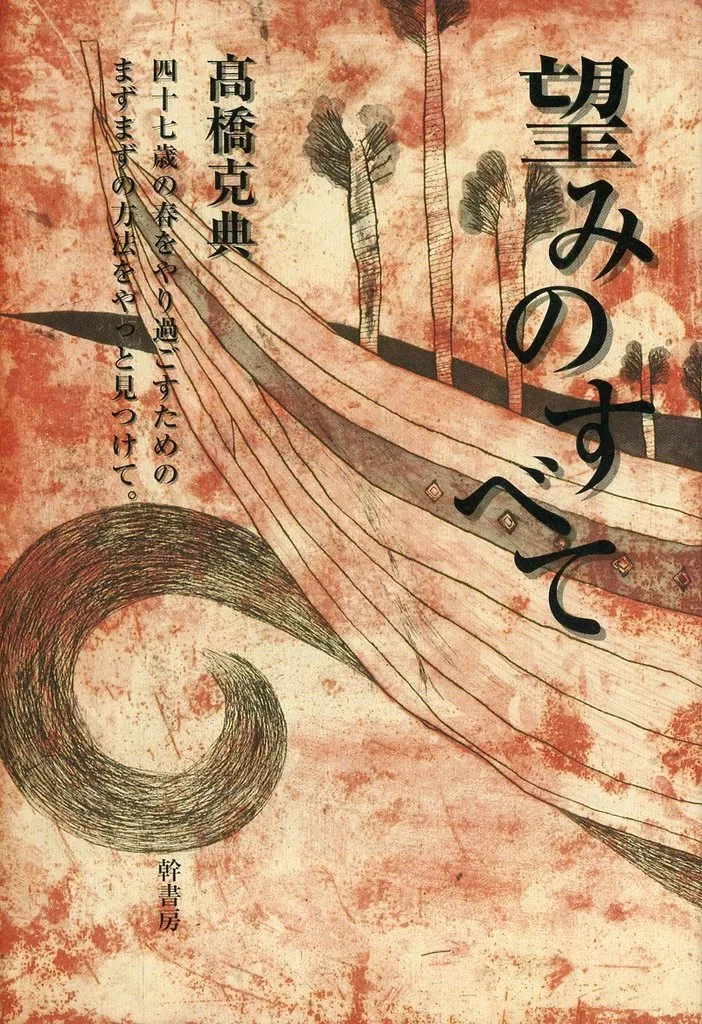 望みのすべて
髙橋克典
四十七歳の春をやり過ごすための
まずまずの方法をやっと見つけて。
幹書房